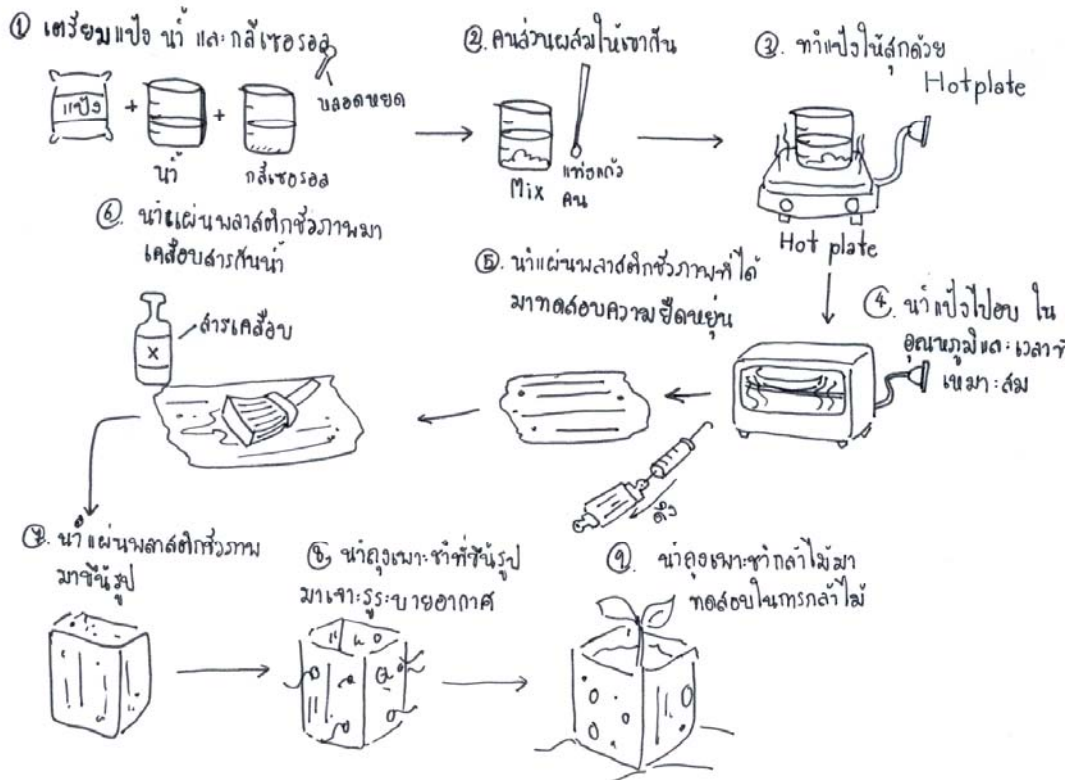 ① เตรียมแป้ง น้ำ และกลีเซอรอล
แป้ง
+
+
หลอดหยด
น้ำ
กลีเซอรอล
②. คนส่วนผสมให้เข้ากัน
Mix
แท่งแก้ว
คน
③. ทำแป้งให้สุกด้วย
Hotplate
Hot plate
④. นำแป้งไปอบ ใน
อุณหภูมิและเวลาที่
เหมาะสม
⑤. นำแผ่นพลาสติกชีวภาพที่ได้
มาทดสอบความยืดหยุ่น
ดึง
⑥. นำแผ่นพลาสติกชีวภาพมา
เคลือบสารกันน้ำ
สารเคลือบ
X
⑦. นำแผ่นพลาสติกชีวภาพ
มาขึ้นรูป
⑧. นำถุงเพาะชำที่ขึ้นรูป
มาเจาะรูระบายอากาศ
⑨. นำถุงเพาะชำกล้าไม้มา
ทดสอบในการกล้าไม้